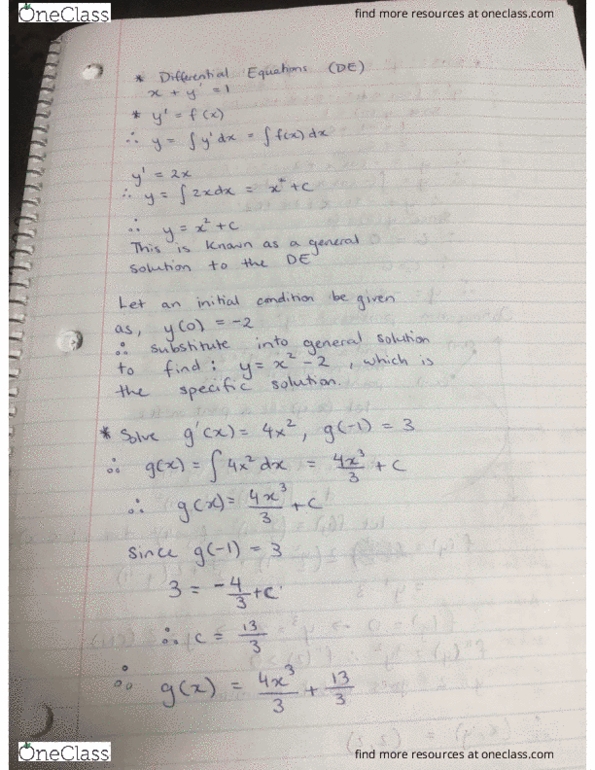 OneClass
find more resources at oneclass.com
* Differential Equations (DE)
x + y' = 1
* y' = f(x)
∴ y = ∫ y' dx = ∫ f(x) dx
y' = 2x
∴ y = ∫ 2x dx = x² + c
∴ y = x² + c
This is known as a general
solution to the DE
Let an initial condition be given
as, y(0) = -2
∴ substitute into general solution
to find : y = x² - 2 , which is
the specific solution.
* Solve g'(x) = 4x², g(-1) = 3
∴ g(x) = ∫ 4x² dx = 4x³/3 + c
∴ g(x) = 4x³/3 + c
since g(-1) = 3
3 = -4/3 + c
∴ c = 13/3
∴ g(x) = 4x³/3 + 13/3
OneClass
find more resources at oneclass.com